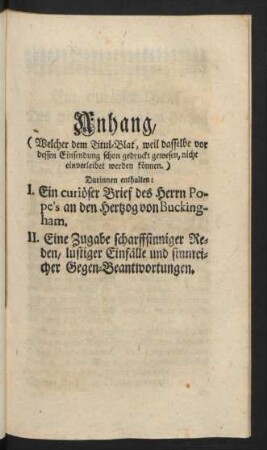 Anhang/
(Welcher dem Titul-Blat, weil dasselbe vor
dessen Einsendung schon gedruckt gewesen, nicht
einverleibet werden können.)
Darinnen enthalten:
I. Ein curiöser Brief des Herrn Po-
pe's an den Hertzog von Bucking-
ham.
II. Eine Zugabe scharffsinniger Re-
den/ lustiger Einfälle und sinnrei-
cher Gegen-Beantwortungen.